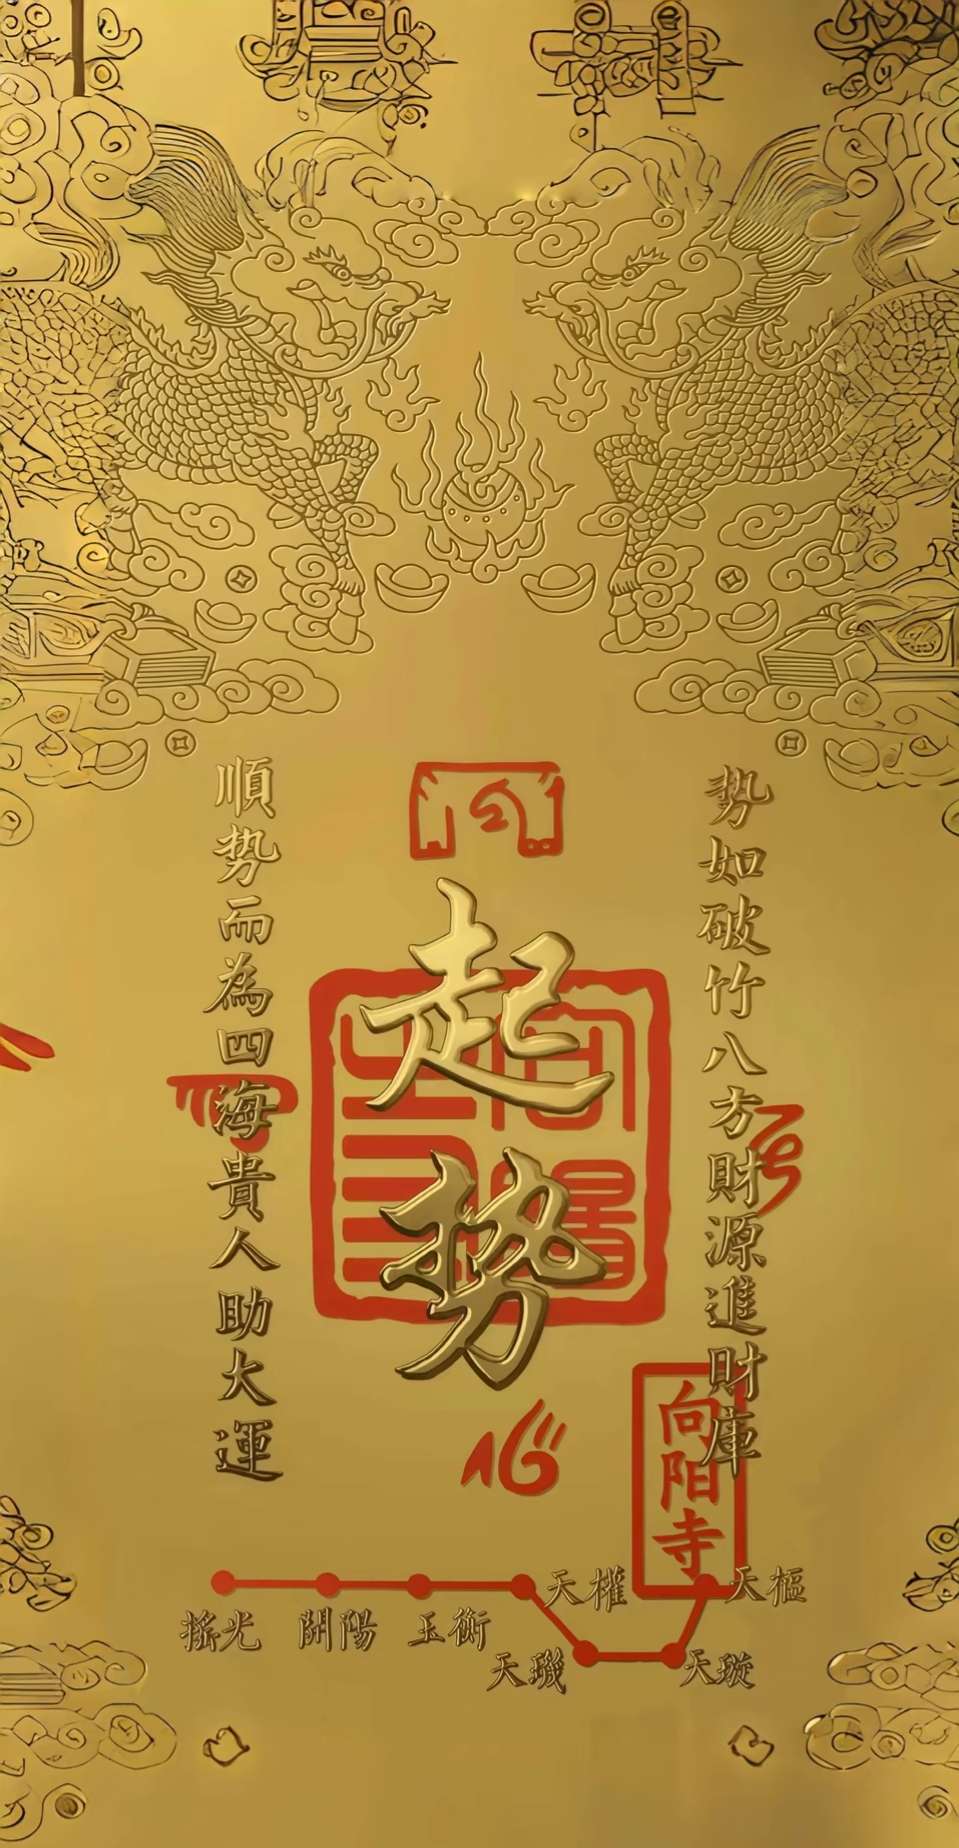 势如破竹八方財源進財庫
起势
順势而為四海貴人助大運
心
向阳寺
搖光
開陽
玉衡
天權
天璣
天璇
天樞